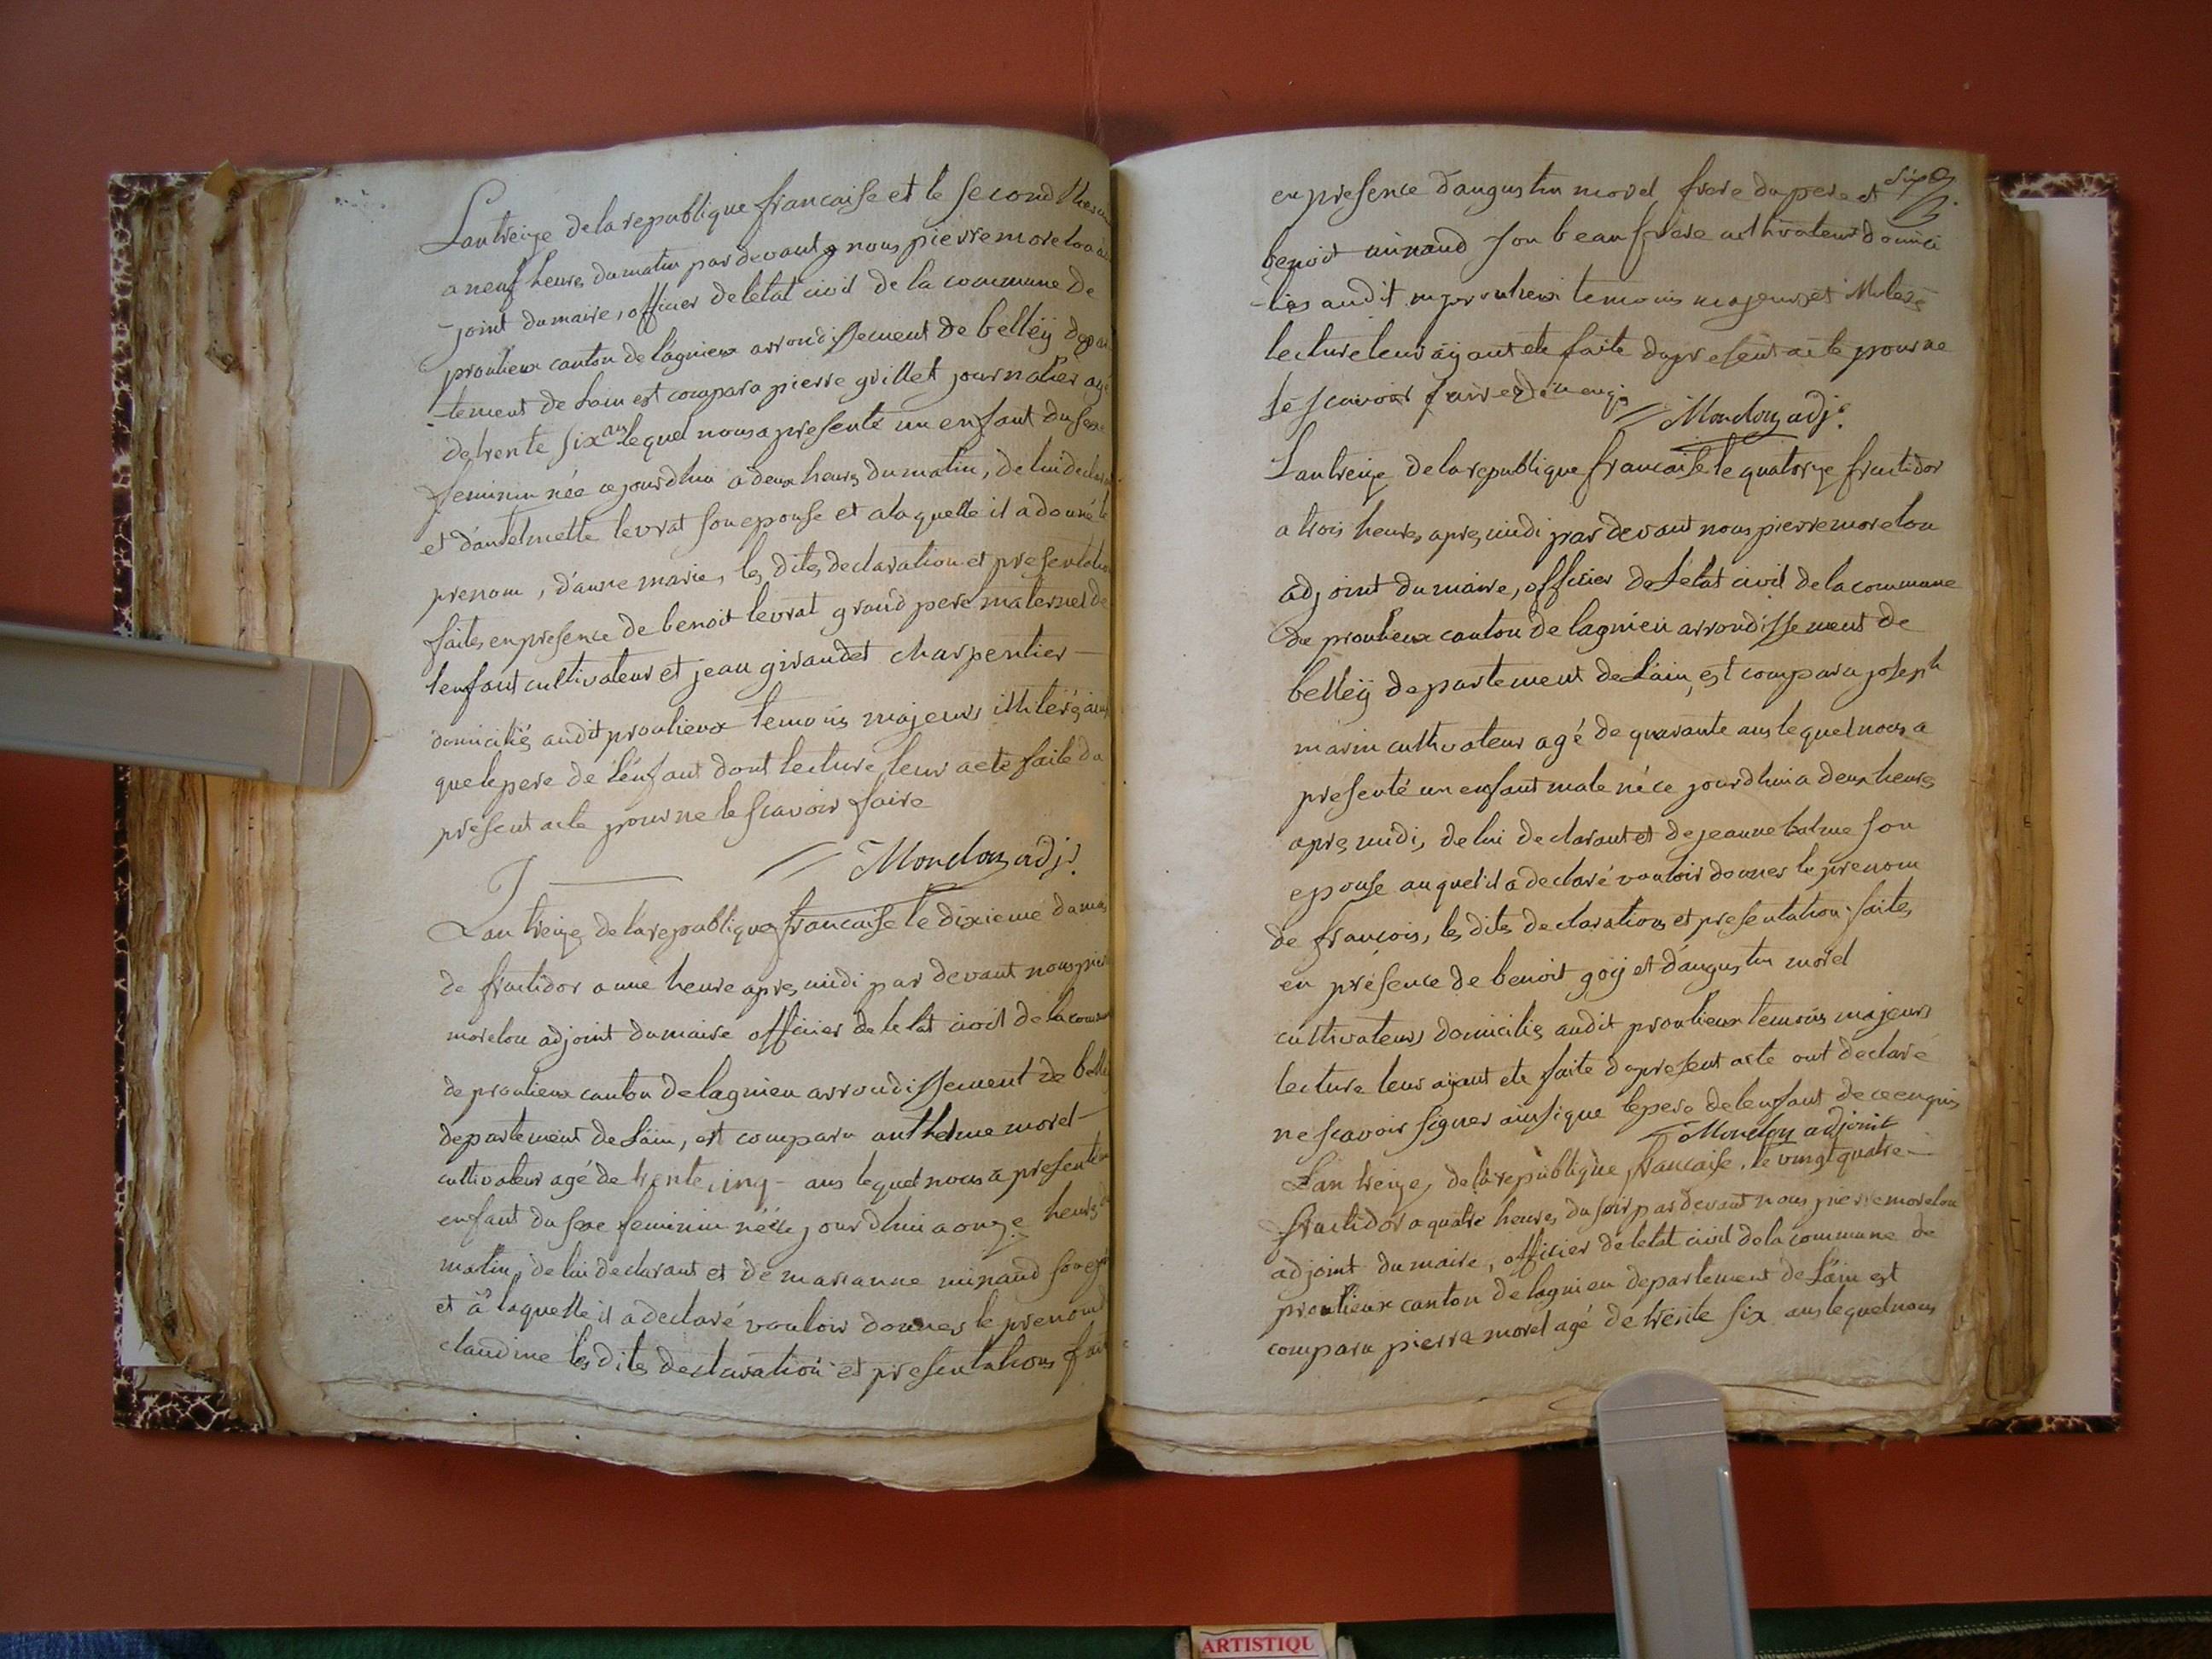 L'an treize de la republique francaise et le second
a neuf heures du matin par devant nous pierre morelon
-joint du maire, officier de letat civil de la commune de
proulieux canton de lagnieu arrondissement de belleÿ
-tement de Lain est comparu pierre grillet journalier agé
de trente six ans lequel nous a presenté un enfant du sexe
feminin née ce jourdhui a deux heures du matin, de lui
et d'antelmette levrat son epouse et a laquelle il a donné le
prenom, d'anne marie, les dites declaration et presentation
faites en presence de benoit levrat grand pere maternel de
lenfant cultivateur et jean giraudet charpentier
domiciliés audit proulieux temoins majeurs illiterés
que le pere de l'enfant dont lecture leur a eté faite du
present acte pour ne le scavoir faire
Morelon adjt
L'an treize de la republique francaise le dixieme du mois
de fructidor a une heure apres midi par devant nous
morelon adjoint du maire officier de letat civil de la
de proulieux canton de lagnieu arrondissement de
departement de Lain, est comparu anthelme morel
cultivateur agé de trente cinq ans lequel nous a presenté
enfant du sexe feminin née ce jourdhui a onze heures
matin, de lui declarant et de marianne minand son
et à laquelle il a declaré vouloir donner le prenom
claudine les dites declaration et presentations
en presence d'augustin morel frere du pere et
benoit minand son beau frere cultivateurs domici
-liés audit proulieux temoins majeurs et illiterés
lecture leur aÿant eté faite du present acte pour ne
le scavoir faire de ce enquis
Morelon adjt
L'an treize de la republique francaise le quatorze fructidor
a trois heures apres midi par devant nous pierre morelon
adjoint du maire, officier de Létat civil de la commune
de proulieux canton de lagnieu arrondissement de
belleÿ departement de Lain, est comparu joseph
marin cultivateur agé de quarante ans lequel nous a
presenté un enfant male né ce jourdhui a deux heures
apres midi, de lui declarant et de jeanne balme son
epouse auquel il a declaré vouloir donner le prenom
de francois, les dites declarations et presentation faites
en présence de benoit goÿ et d'augustin morel
cultivateurs domiciliés audit proulieux temoins majeurs
lecture leur aÿant eté faite du present acte ont declaré
ne scavoir signer ainsi que le pere de lenfant de ce enquis
Morelon adjoint
L'an treize de la republique francaise, le vingt quatre
fructidor a quatre heures du soir par devant nous pierre morelon
adjoint du maire, officier de letat civil de la commune de
proulieux canton de lagnieu departement de Lain est
comparu pierre morel agé de trente six ans lequel nous
ARTISTIQU